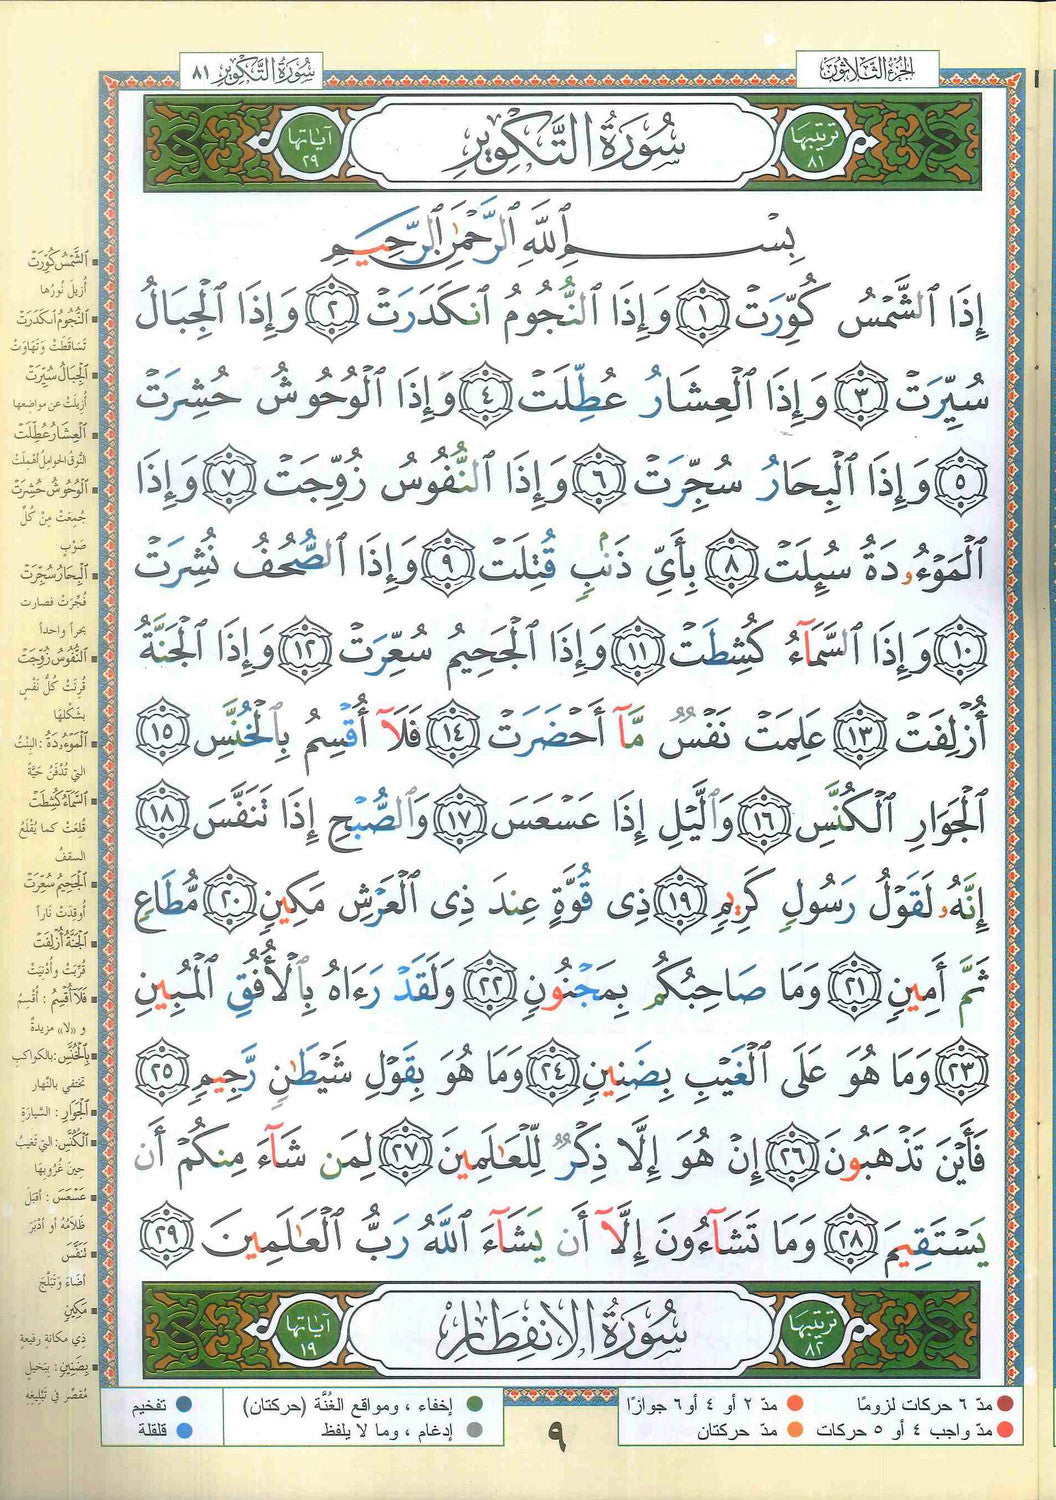 سُورَةُ التَّكْوِير ٨١
الجزء الثلاثون
ترتيبها ٨١
سُورَةُ التَّكْوِير
آياتها ٢٩
بِسۡمِ ٱللَّهِ ٱلرَّحۡمَٰنِ ٱلرَّحِيمِ
إِذَا ٱلشَّمۡسُ كُوِّرَتۡ ١ وَإِذَا ٱلنُّجُومُ ٱنكَدَرَتۡ ٢ وَإِذَا ٱلۡجِبَالُ
سُيِّرَتۡ ٣ وَإِذَا ٱلۡعِشَارُ عُطِّلَتۡ ٤ وَإِذَا ٱلۡوُحُوشُ حُشِرَتۡ
٥ وَإِذَا ٱلۡبِحَارُ سُجِّرَتۡ ٦ وَإِذَا ٱلنُّفُوسُ زُوِّجَتۡ ٧ وَإِذَا
ٱلۡمَوۡءُۥدَةُ سُئِلَتۡ ٨ بِأَيِّ ذَنۢبٖ قُتِلَتۡ ٩ وَإِذَا ٱلصُّحُفُ نُشِرَتۡ
١٠ وَإِذَا ٱلسَّمَآءُ كُشِطَتۡ ١١ وَإِذَا ٱلۡجَحِيمُ سُعِّرَتۡ ١٢ وَإِذَا ٱلۡجَنَّةُ
أُزۡلِفَتۡ ١٣ عَلِمَتۡ نَفۡسٞ مَّآ أَحۡضَرَتۡ ١٤ فَلَآ أُقۡسِمُ بِٱلۡخُنَّسِ ١٥
ٱلۡجَوَارِ ٱلۡكُنَّسِ ١٦ وَٱلَّيۡلِ إِذَا عَسۡعَسَ ١٧ وَٱلصُّبۡحِ إِذَا تَنَفَّسَ ١٨
إِنَّهُۥ لَقَوۡلُ رَسُولٖ كَرِيمٖ ١٩ ذِي قُوَّةٍ عِندَ ذِي ٱلۡعَرۡشِ مَكِينٖ ٢٠ مُّطَاعٖ
ثَمَّ أَمِينٖ ٢١ وَمَا صَاحِبُكُم بِمَجۡنُونٖ ٢٢ وَلَقَدۡ رَءَاهُ بِٱلۡأُفُقِ ٱلۡمُبِينِ
٢٣ وَمَا هُوَ عَلَى ٱلۡغَيۡبِ بِضَنِينٖ ٢٤ وَمَا هُوَ بِقَوۡلِ شَيۡطَٰنٖ رَّجِيمٖ ٢٥
فَأَيۡنَ تَذۡهَبُونَ ٢٦ إِنۡ هُوَ إِلَّا ذِكۡرٞ لِّلۡعَٰلَمِينَ ٢٧ لِمَن شَآءَ مِنكُمۡ أَن
يَسۡتَقِيمَ ٢٨ وَمَا تَشَآءُونَ إِلَّآ أَن يَشَآءَ ٱللَّهُ رَبُّ ٱلۡعَٰلَمِينَ ٢٩
ترتيبها ٨٢
سُورَةُ الانفِطَار
آياتها ١٩
ٱلشَّمۡسُ كُوِّرَتۡ
أُزيلَ نُورُها
ٱلنُّجُومُ ٱنكَدَرَتۡ
تَسَاقَطَتْ وَتَهَاوَتْ
ٱلۡجِبَالُ سُيِّرَتۡ
أُزِيلَتْ عن مواضعها
ٱلۡعِشَارُ عُطِّلَتۡ
النُّوقُ الحَوامِلُ أُهْمِلَتْ
ٱلۡوُحُوشُ حُشِرَتۡ
جُمِعَتْ مِنْ كُلِّ
صَوْبٍ
ٱلۡبِحَارُ سُجِّرَتۡ
فُجِّرَتْ فصارت
بحراً واحداً
ٱلنُّفُوسُ زُوِّجَتۡ
قُرِنَتْ كُلُّ نَفْسٍ
بِشَكلِهَا
ٱلۡمَوۡءُۥدَةُ : البِنْتُ
التي تُدْفَنُ حَيَّةً
ٱلسَّمَآءُ كُشِطَتۡ
قُلِعَتْ كما يُقْلَعُ
السقفُ
ٱلۡجَحِيمُ سُعِّرَتۡ
أُوقِدَتْ نَاراً
ٱلۡجَنَّةُ أُزۡلِفَتۡ
قُرِّبَتْ وأُدْنِيَتْ
فَلَآ أُقۡسِمُ : أُقْسِمُ
و «لا» مزيدةٌ
بِٱلۡخُنَّسِ : بالكواكبِ
تختفي بالنَّهار
ٱلۡجَوَارِ : السَّيَّارَةِ
ٱلۡكُنَّسِ : التي تَغيبُ
حِينَ غُرُوبِهَا
عَسۡعَسَ : أقبَلَ
ظَلَامُهُ أو أدْبَرَ
تَنَفَّسَ
أضَاءَ وَتَبَلَّجَ
مَكِينٖ
ذِي مكانةٍ رفيعةٍ
بِضَنِينٖ : بِبَخيلٍ
مُقصِّرٍ في تَبْليغِهِ
مدّ ٦ حركات لزومًا
مدّ ٢ أو ٤ أو ٦ جوازًا
مدّ واجب ٤ أو ٥ حركات
مدّ حركتان
إخفاء ، ومواقع الغُنَّة (حركتان)
إدغام ، وما لا يلفظ
تفخيم
قلقلة
٩